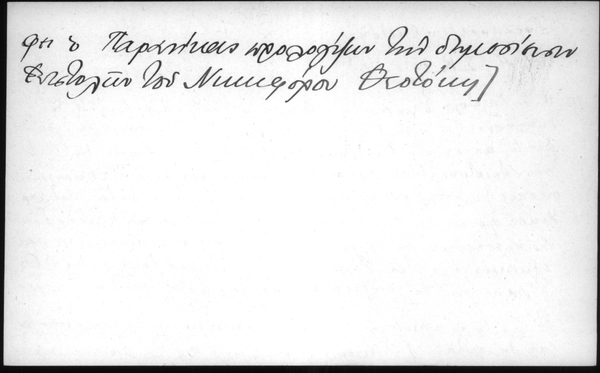 ὅτι ὁ Παρανίκας προλογίζων τὴν δημοσίευσιν
ἐπιστολῶν τοῦ Νικηφόρου Θεοτόκη]